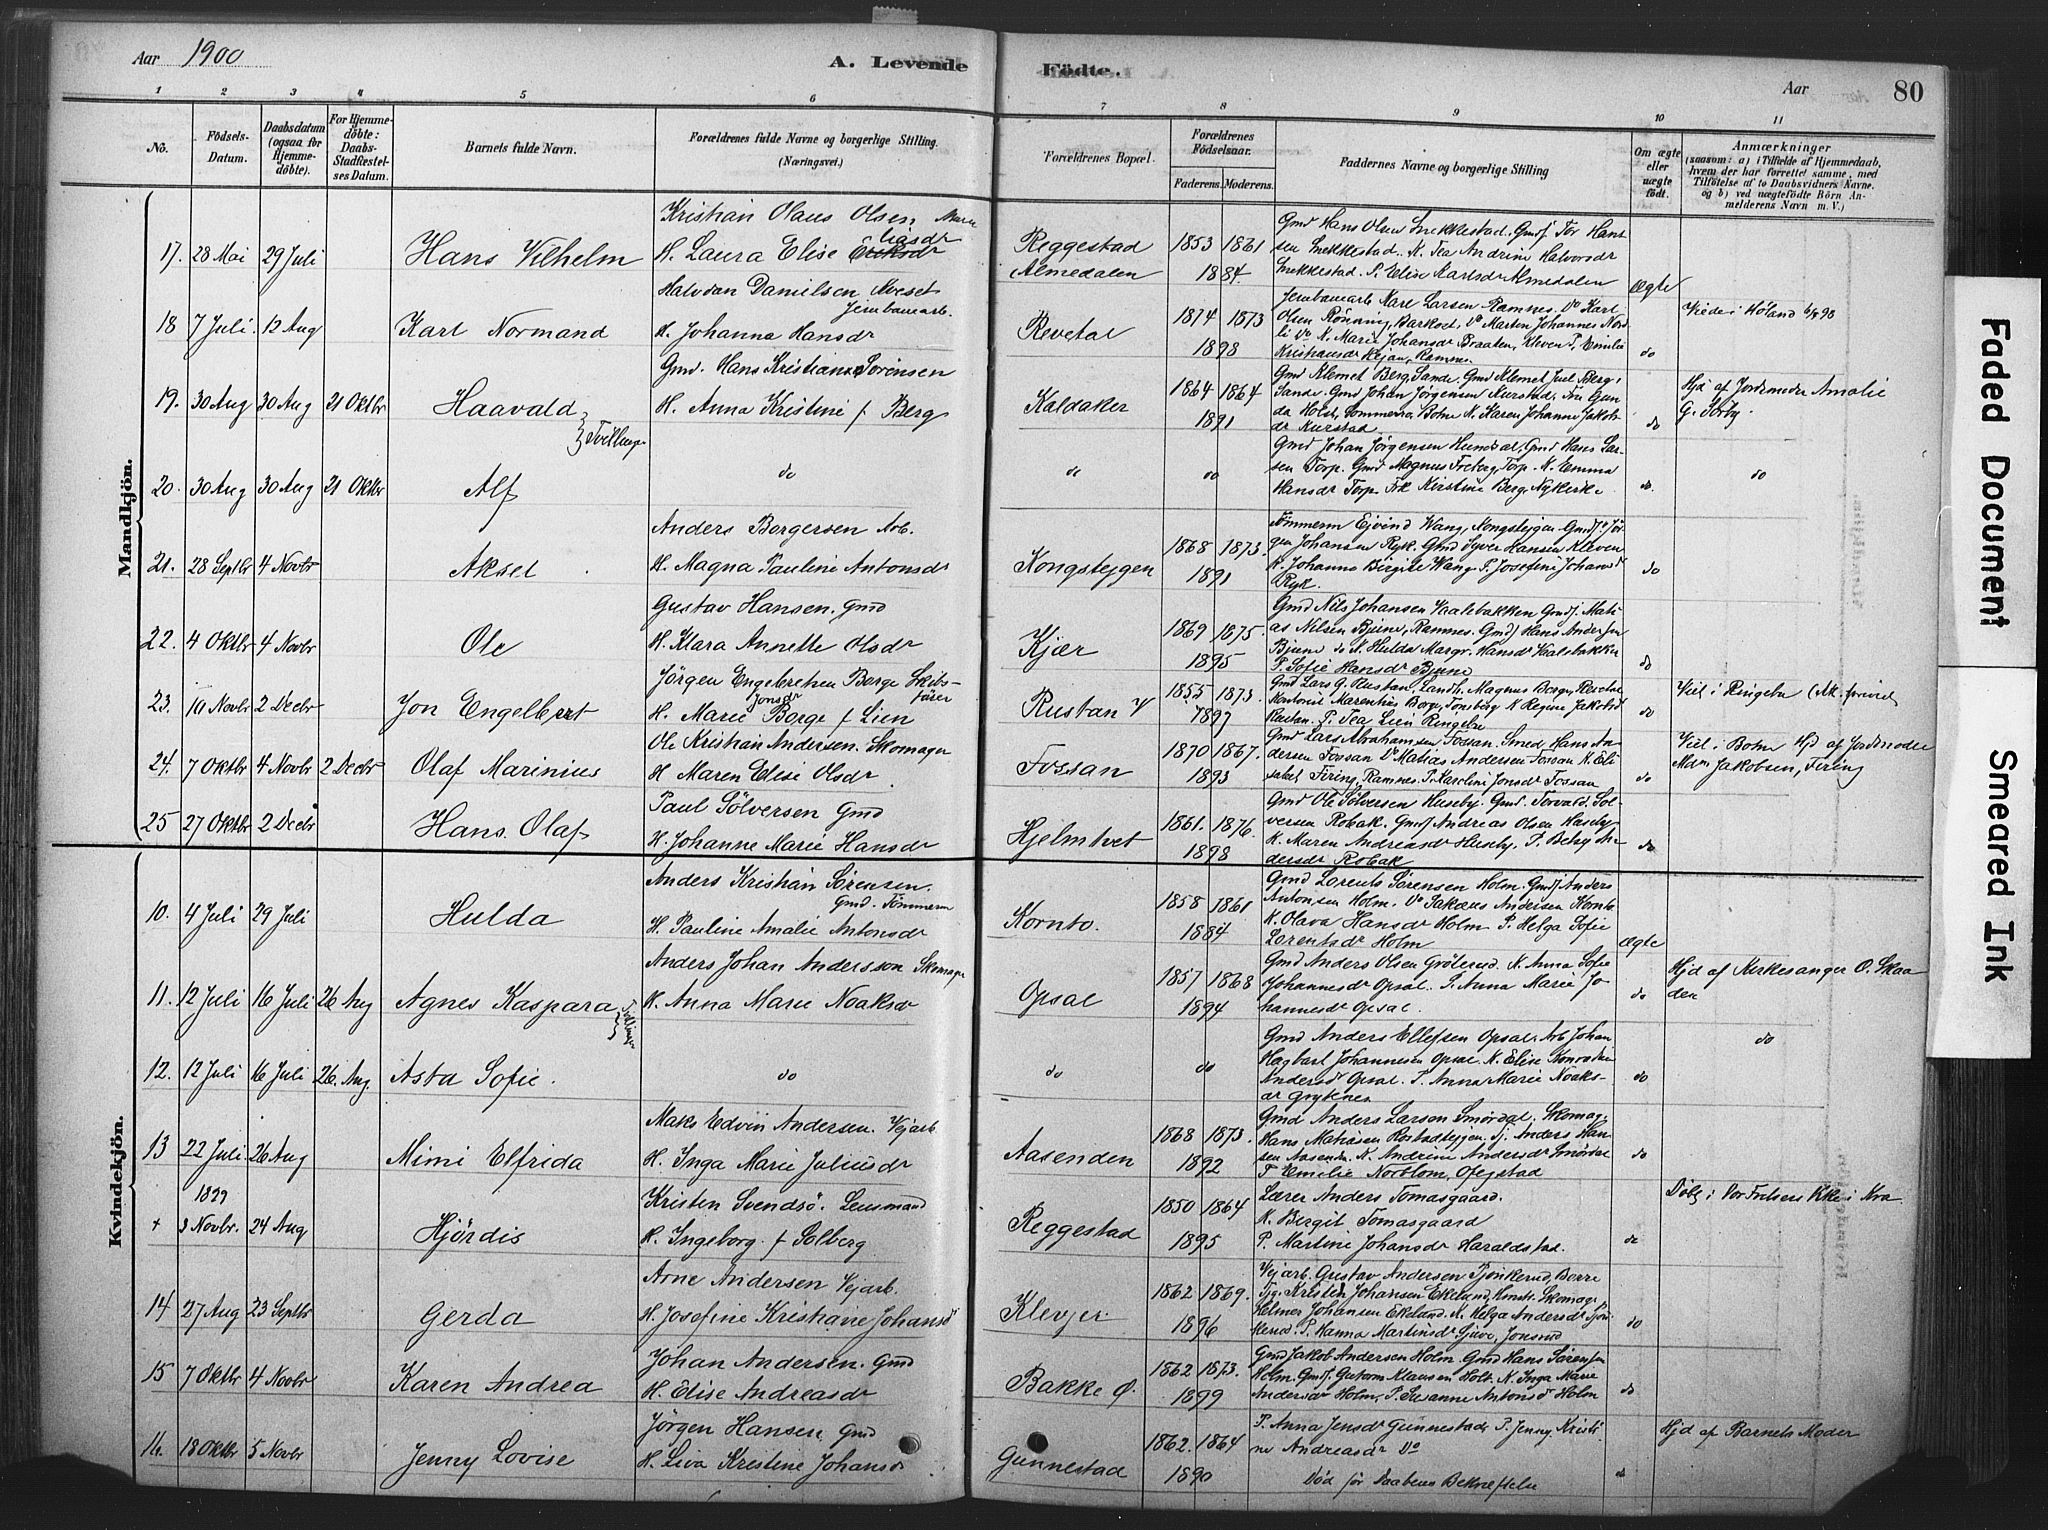 Aar 1900
A. Levende Födte.
Aar 80
1 2 3 4 5 6 7 8 9 10 11
No.
Födsels-Datum.
Daabsdatum (ogsaa for Hjemme-døbte).
For Hjemme-døbte: Daabs-Stadfæstel-ses Datum.
Barnets fulde Navn.
Forældrenes fulde Navne og borgerlige Stilling.
(Næringsvei.)
Forældrenes Bopæl.
Forældrenes Fødselsaar.
Faderens. Moderens.
Faddernes Navne og borgerlige Stilling
Om ægte eller uægte født.
Anmærkninger
(saasom: a) i Tilfælde af Hjemmedaab, hvem der har forrettet samme, med Tilføielse af to Daabsvidners Navne, og b) ved uægtefødte Börn Anmelderens Navn m. V.)
Mandkjön.
17. 28 Mai 29 Juli Hans Vilhelm
Kristian Olaus Olsen
H. Laura Elise
Reggestad
Almedalen
1853 1861
1884.
Gmd Hans Olsen Snekkestad. Gmdf. Tor Han-
sen Snekkestad. K. Tea Andrine Halvorsdr
Snekkestad. P. Elise Karlsdr Almedalen
ægte
18 7 Juli. 12 Aug Karl Normand
Halvdan Danielsen Kveset
Jernbanearb.
H. Johanna Hansdr
Revetal
1874 1873
1898
Jernbanearb Karl Larsen Ramnes. Do Karl
Olsen Rönning, Barkost, Do Martin Johannes Nord-
li Do K. Marie Johansdr Braaten, Kleven P. Emilie
Kristiansdr Rejan, Ramnes
do
Viede i Höland 6/8 98
19. 30 Aug 30 Aug 21 Oktbr Haavald
Tvillinger
Gmd. Hans Kristian Sörensen
H. Anna Kristine f. Berg
Kaldaker
1864 1864
1891
Gmd Klemet Berg, Sande. Gmd Klemet Juel Berg,
Sande. Gmd Johan Jörgensen Kurstad. Fru Gun-
da Holst, Sommerro, Botne K. Karen Johanne Jakobs-
dr Kurstad
do
Hjd af Jordmoder Amalie
G. Sörby.
20. 30 Aug 30 Aug 21 Oktbr Alf
do
do
do
Gmd Johan Jörgensen Hundsal, Gmd Hans Lar-
sen Torp. Gmd Magnus Freberg, Torp. K. Emma
Hansdr Torp. Frk Kirstine Berg, Nykirke.
do.
do
21. 28 Septbr 4 Novbr Aksel
Anders Borgersen Arb.
H. Magna Pauline Antonsdr
Kongstejgen
1868 1873.
1891
Tömmerm Ejvind Wang, Kongstejgen. Gmdf. Jör-
gen Johansen Ryk. Gmd Syver Hansen Kleven
K. Johanna Birgitte Wang P. Josefine Johansdr
Ryk.
do
22. 4 Oktbr 4 Novbr Ole
Gustav Hansen. Gmd
H. Klara Annette Olsdr
Kjær
1869 1875.
1895
Gmd Nils Johansen Vaalebakken Gmdf. Mati-
as Nilsen Bjune, Ramnes. Gmdf Hans Andersen
Bjune do K. Hulda Margr. Hansdr Vaalebakken
P. Sofie Hansdr Bjune
do
23. 10 Novbr 2 Decbr Jon Engelbert
Jörgen Engebretsen Borge Skibs-
förer
Jonsdr
H. Marie Borge f Lien
Rustan V
1855 1873
1897
Gmd Lars G. Rustan, Landh. Magnus Borge,
Kontorist Marentius Borge, Tönsberg K Regine Jakobsdr
Rustan. P. Tea Lien Ringebu
do
Viet i Ringebu
24. 7 Oktbr 4 Novbr 2 Decbr Olaf Marinius
Ole Kristian Andersen. Skomager
H Maren Elise Olsdr
Fossan
1870 1867.
1893
Gmd Lars Abrahamsen Fossan. Smed Hans An-
dersen Fossan Do Matias Andersen Fossan K. Eli-
sabet Firing, Ramnes. P. Karoline Jonsdr Fossan
do
Viet i Botne Hjd af Jordmoder
Mdm Jakobsen, Firing
25 27 Oktbr 2 Decbr Hans Olaf
Paul Sölversen Gmd
H. Johanne Marie Hansdr
Hjelmtvet
1861. 1876.
1898
Gmd Ole Sölversen Huseby. Gmd. Torvald Söl-
versen Robak. Gmdf Andreas Olsen Huseby
K. Maren Andreasdr Huseby, P. Betsy An-
dersdr Robak
do
Kvindekjön.
10. 4 Juli 29 Juli Hulda
Anders Kristian Sörensen.
Gmd. Tömmerm
H. Pauline Amalie Antonsdr
Kornto.
1858 1861
1884
Gmd Lorents Sörensen Holm. Gmdf Anders
Antonsen Holm. Do Sakæus Andersen Kornto
K. Olava Hansdr Holm P. Helga Sofie
Lorentsdr Holm
ægte
11. 12 Juli 16 Juli 26 Aug Agnes Kaspara
Tvillinger
Anders Johan Andersson Skomager
H. Anna Marie Noaksdr
Opsal
1857 1868
1894
Gmd Anders Olsen Gröterud. K. Anna Sofie
Johannesdr Opsal. P. Anna Marie Jo-
hannesdr Opsal.
do
Hjd af Kirkesanger O. Skaa-
den
12. 12 Juli 16 Juli 26. Aug. Asta Sofie.
do
do
do
Gmd Anders Ellefsen Opsal. Arb Johan
Hagbart Johannesen Opsal. K. Elise
Andersdr Opsal. P. Anna Marie Noaks-
dr Grytenes
do
do
13 22 Juli 26 Aug Mimi Elfrida
Maks Edvin Andersen. Vejarb.
H. Inga Marie Juliusdr
Aasenden
1868 1873.
1892
Gmd Anders Larsen Smördal. Skomag.
Hans Matiasen Rostadtejgen. Sj. Anders Han-
sen Aasenden. K. Andrine Andersdr Smördal
P Emilie Norblom, Ofegstad
do
1899
+ 3 Novbr. 24 Aug Hjördis
Kristen Svendsö. Lensmand
H. Ingeborg f Solberg
Reggestad
1850 1864
1895
Lærer Anders Tomasgaard.
K. Bergit Tomasgaard
P. Martine Johansdr Haraldstad.
do
Döbt i Vor Frelsers Kke i Kra
14 27 Aug 23 Septbr Gerda
Arne Andersen Vejarb.
H. Josefine Kristiane Johansdr
Klevjer
1862 1869.
1896
Vejarb. Gustav Andersen Tjönkerud, Borre
Tjg. Kristen Johansen Ekelund, Skomag.
Helmer Johansen Ekelund. K. Helga Andersdr Tjön-
kerud. P. Hanna Martinsdr Gjuve, Jonsrud
do
15 7 Oktbr 4 Novbr Karen Andrea
Johan Andersen. Gmd
H. Elise Andreasdr
Bakke Ø.
1862 1873.
1899
Gmd Jakob Andersen Holm. Gmd Hans Sörensen
Holm. Gmdf. Gutorm Klausen Holt. K. Inga Marie
Andersdr Holm, P. Susanne Antonsdr Holm
do
16. 18 Oktbr 5 Novbr Jenny Lovise
Jörgen Hansen Gmd
H. Liva Kristine Johansdr
Gunnestad
1862. 1864
1890
P. Anna Jensdr Gunnestad, P. Jenny Kristi-
ne Andreasdr Do
Död för Daabens Bekræftelse
do
Hjd af Barnets Moder
Faded Document
Smeared Ink